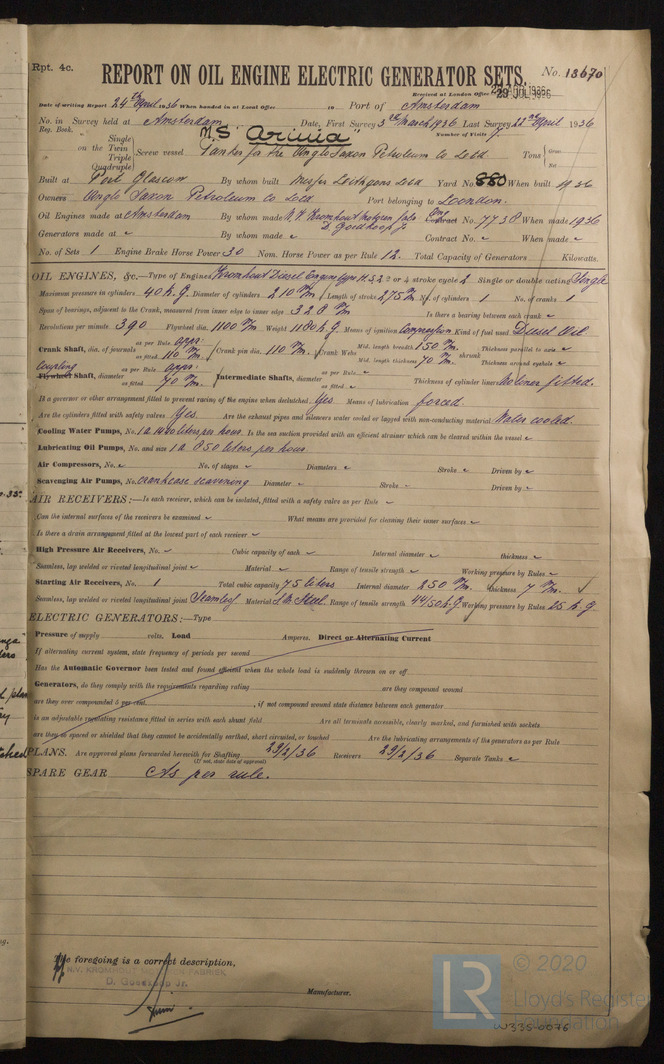 Rpt. 4c.
REPORT ON OIL ENGINE ELECTRIC GENERATOR SETS.
No. 13670
Received at London Office
29 JUL 1936
Date of writing Report 24th April 1936 When handed in at Local Office 19 Port of Amsterdam
No. in Survey held at Amsterdam Date, First Survey 3rd March 1936 Last Survey 21st April 1936
Reg. Book. Number of Visits 7
M.S "Arinia"
Single
on the Twin
Triple
Quadruple
Screw vessel Tanker for the Anglo Saxon Petroleum Co Ltd Tons Gross
Net
Built at Port Glasgow By whom built Messrs Lithgows Ltd Yard No. 880 When built 1936
Owners Anglo Saxon Petroleum Co Ltd Port belonging to London.
Oil Engines made at Amsterdam By whom made N.V. Kromhout Motoren Fabr. D. Goedkoop Jr Contract No. 7738 When made 1936
Generators made at By whom made Contract No. When made
No. of Sets 1 Engine Brake Horse Power 30 Nom. Horse Power as per Rule 12. Total Capacity of Generators Kilowatts.
OIL ENGINES, &c.—Type of Engines Kromhout Diesel Engine type 2 or 4 stroke cycle 2 Single or double acting Single
Maximum pressure in cylinders 40 k.g. Diameter of cylinders 210 m/m. Length of stroke 275 m/m. No. of cylinders 1 No. of cranks 1
Span of bearings, adjacent to the Crank, measured from inner edge to inner edge 328 m/m Is there a bearing between each crank
Revolutions per minute 390 Flywheel dia. 1100 m/m. Weight 1180 k.g. Means of ignition Compression Kind of fuel used Diesel Oil
Crank Shaft, dia. of journals as per Rule appr: as fitted 110 m/m. Crank pin dia. 110 m/m. Crank Webs Mid. length breadth 150 m/m. Mid. length thickness 70 m/m. shrunk Thickness parallel to axis Thickness around eyehole
Coupling
Flywheel Shaft, diameter as per Rule appr: as fitted 70 m/m. Intermediate Shafts, diameter as per Rule as fitted Thickness of cylinder liners No liner fitted.
Is a governor or other arrangement fitted to prevent racing of the engine when declutched Yes Means of lubrication forced
Are the cylinders fitted with safety valves Yes Are the exhaust pipes and silencers water cooled or lagged with non-conducting material Water cooled.
Cooling Water Pumps, No. 1 a liters per hour. Is the sea suction provided with an efficient strainer which can be cleared within the vessel
Lubricating Oil Pumps, No. and size 1 a 850 liters per hour
Air Compressors, No. No. of stages Diameters Stroke Driven by
Scavenging Air Pumps, No. crankcase scavening Diameter Stroke Driven by
AIR RECEIVERS:—Is each receiver, which can be isolated, fitted with a safety valve as per Rule
Can the internal surfaces of the receivers be examined What means are provided for cleaning their inner surfaces
Is there a drain arrangement fitted at the lowest part of each receiver
High Pressure Air Receivers, No. Cubic capacity of each Internal diameter thickness
Seamless, lap welded or riveted longitudinal joint Material Range of tensile strength Working pressure by Rules
Starting Air Receivers, No. 1 Total cubic capacity 75 liters Internal diameter 250 m/m. thickness 7 m/m.
Seamless, lap welded or riveted longitudinal joint Seamless Material S.M. Steel Range of tensile strength 44/50 k.g. Working pressure by Rules 25 k.g
ELECTRIC GENERATORS:—Type
Pressure of supply volts. Load Amperes. Direct or Alternating Current
If alternating current system, state frequency of periods per second
Has the Automatic Governor been tested and found efficient when the whole load is suddenly thrown on or off
Generators, do they comply with the requirements regarding rating are they compound wound
are they over compounded 5 per cent. , if not compound wound state distance between each generator
is an adjustable regulating resistance fitted in series with each shunt field Are all terminals accessible, clearly marked, and furnished with sockets
are they so spaced or shielded that they cannot be accidentally earthed, short circuited, or touched Are the lubricating arrangements of the generators as per Rule
PLANS. Are approved plans forwarded herewith for Shafting 29/2/36 Receivers 29/2/36 Separate Tanks
(If not, state date of approval)
SPARE GEAR As per rule.
The foregoing is a correct description,
N.V. KROMHOUT MOTOREN FABRIEK
D. Goedkoop Jr.
Manufacturer.
LR
© 2020
Lloyd's Register
Foundation
W335-0076